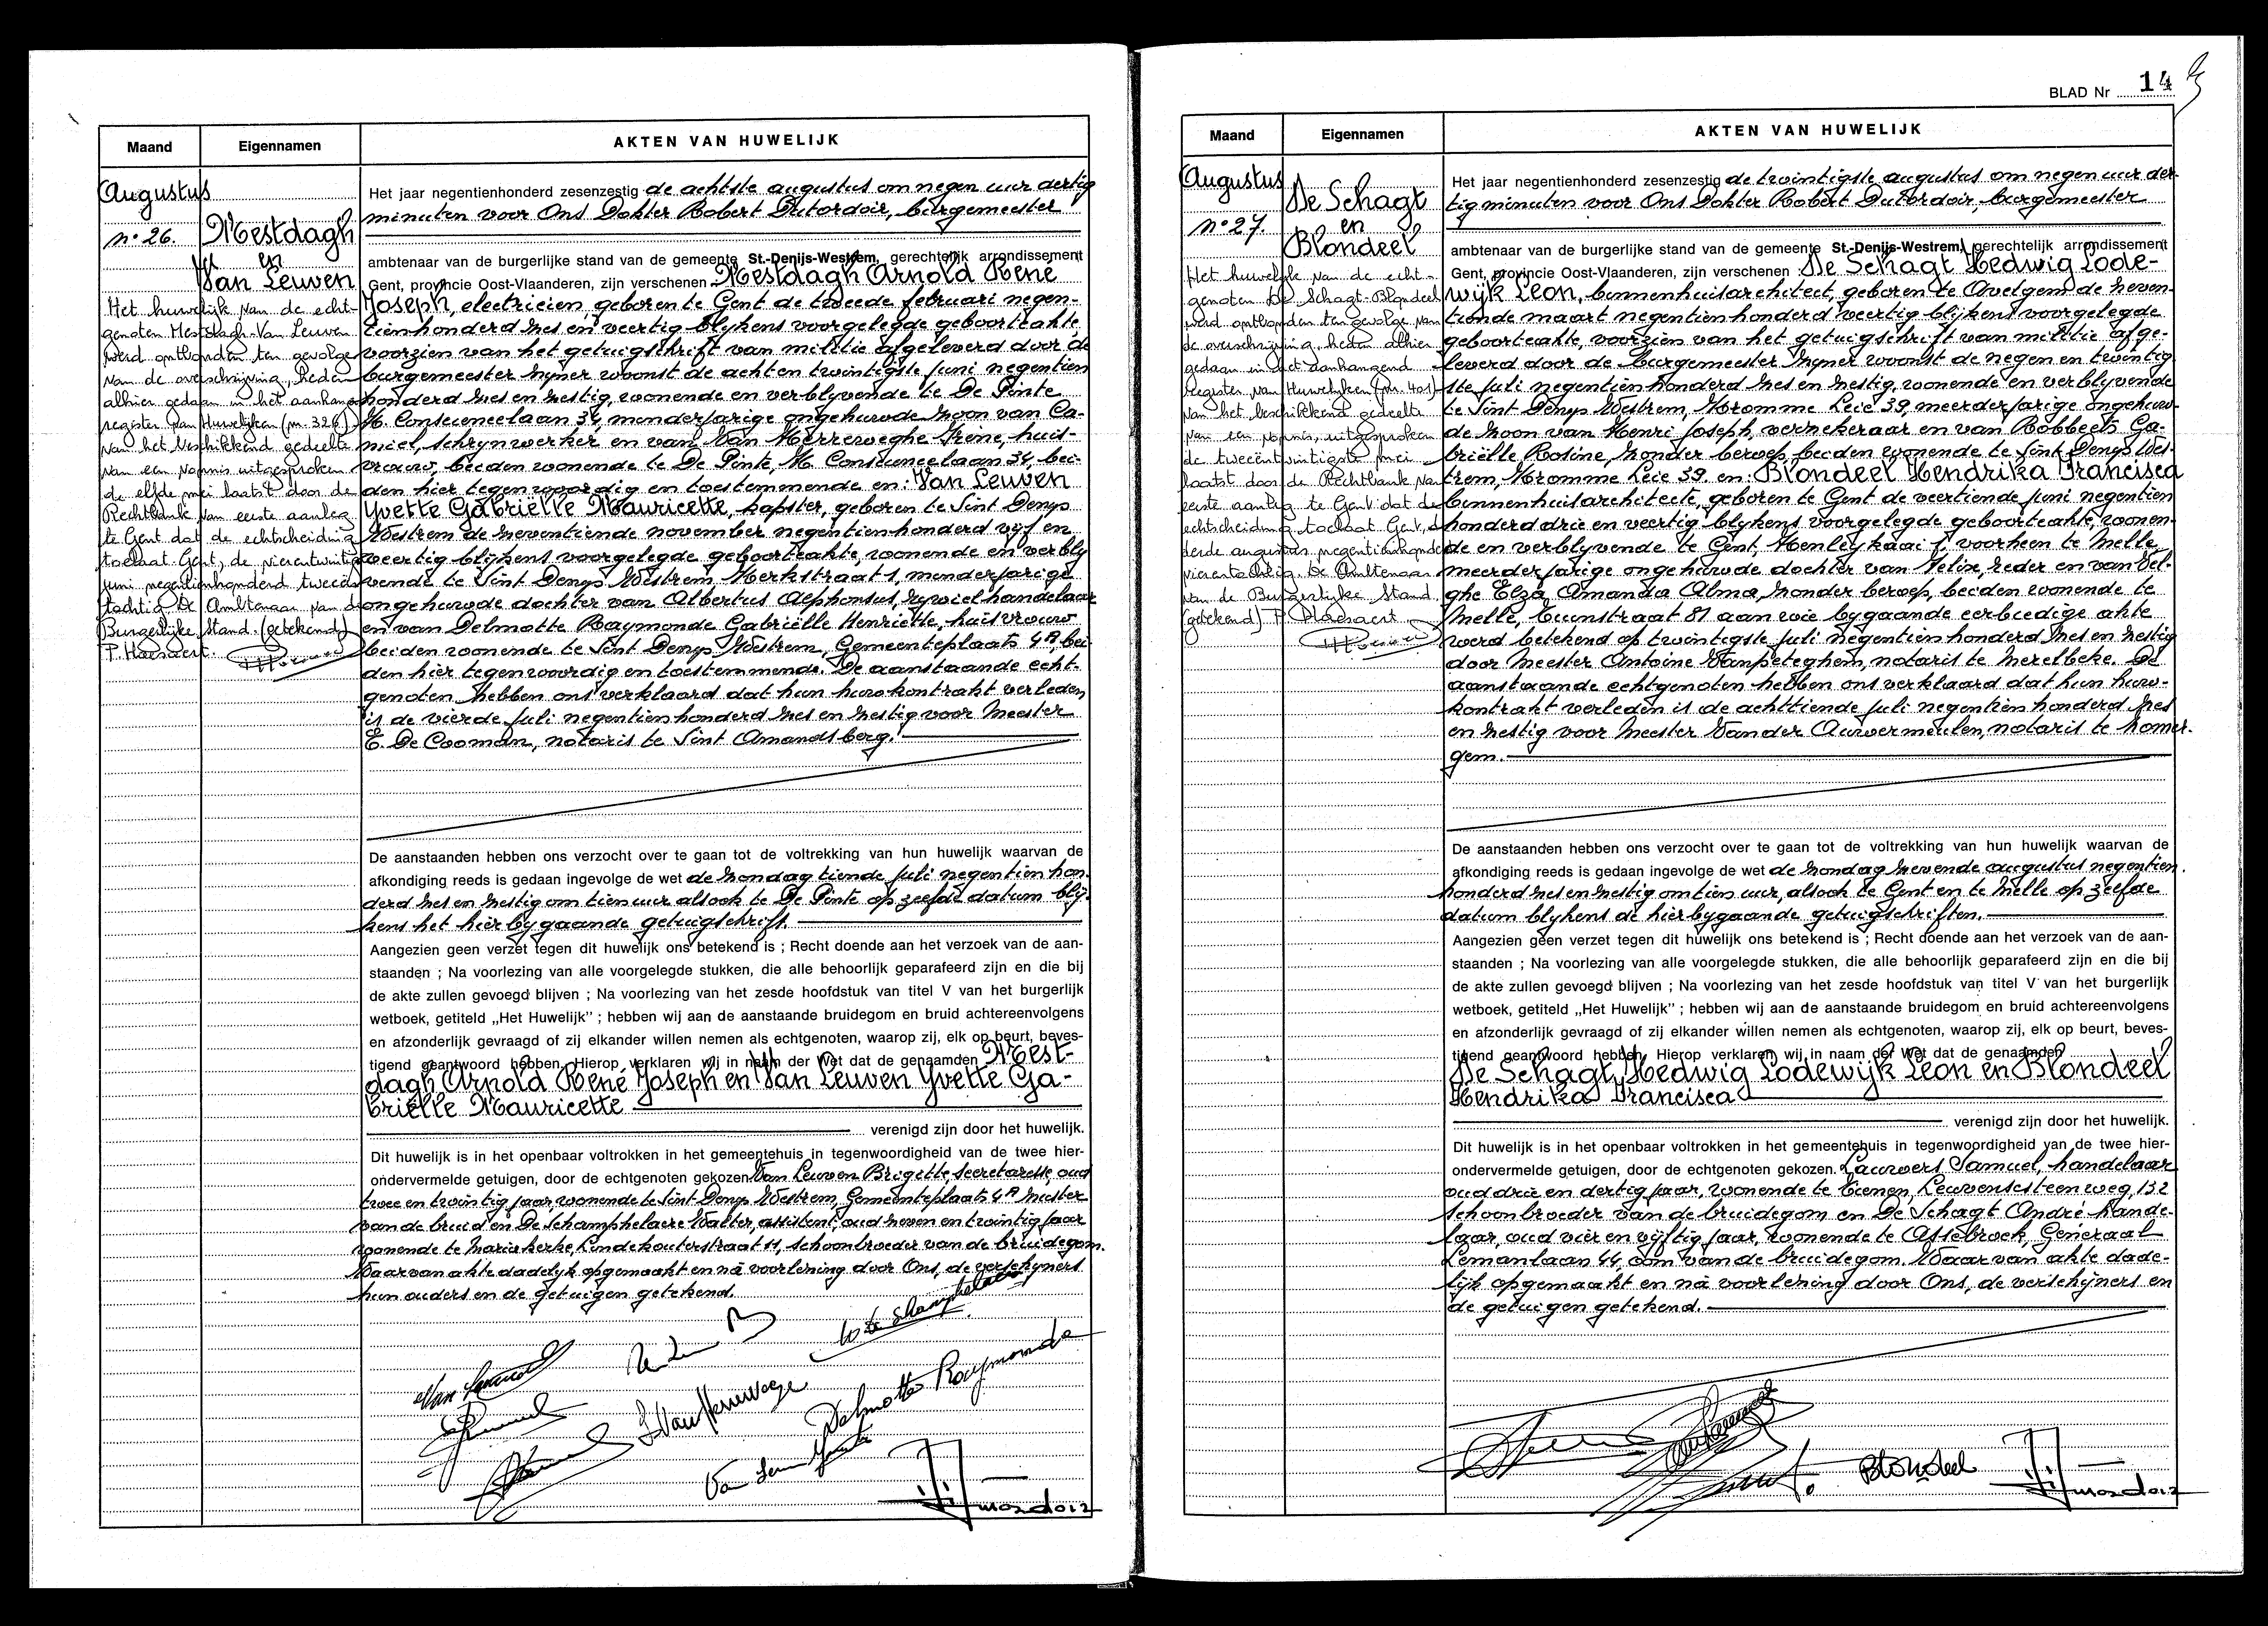 Maand
Eigennamen
AKTEN VAN HUWELIJK
Augustus
n° 26.
Mestdagh
en
Van Leuven
Het huwelijk van de echt-
genoten Mestdagh-Van Leuven
werd ontbonden ten gevolge
van de overschrijving, heden
alhier gedaan in het aanhang
register van Huwelijken (nr. 326)
van het beschikkend gedeelte
van een vonnis uitgesproken
de elfde mei laatst door de
Rechtbank van eerste aanleg
te Gent dat de echtscheiding
toelaat. Gent, de vierentwintig
juni negentienhonderd tweeën
tachtig. De Ambtenaar van de
Burgerlijke Stand. (getekend)
P. Haesaert.
Het jaar negentienhonderd zesenzestig de achtste augustus om negen uur dertig
minuten voor Ons Dokter Robert Dutordoir, burgemeester
ambtenaar van de burgerlijke stand van de gemeente St.-Denijs-Westrem, gerechtelijk arrondissement
Gent, provincie Oost-Vlaanderen, zijn verschenen Mestdagh Arnold René
Joseph, electricien, geboren te Gent de tweede februari negen-
tienhonderd zes en veertig blijkens voorgelegde geboorteakte
voorzien van het getuigschrift van militie afgeleverd door de
burgemeester zyner woonst de acht en twintigste juni negentien
honderd zes en zestig, wonende en verblyvende te De Pinte
H. Consciencelaan 34, minderjarige ongehuwde zoon van Ca-
miel, schrynwerker en van Van Herreweghe Irène, huis-
vrouw, beiden wonende te De Pinte, H. Consciencelaan 34, bei-
den hier tegenwoordig en toestemmende en: Van Leuven
Yvette Gabriëlle Mauricette, kapster, geboren te Sint Denys
Westrem de zeventiende november negentienhonderd vijf en
veertig blijkens voorgelegde geboorteakte, wonende en verbly
vende te Sint Denys Westrem Kerkstraat 1, minderjarige
ongehuwde dochter van Albertus Alphonsus, rywielhandelaar
en van Delmotte Raymonde Gabriëlle Henriette, huisvrouw
beiden wonende te Sint Denys Westrem, Gemeenteplaats 4A, bei
den hier tegenwoordig en toestemmende. De aanstaande echt-
genoten hebben ons verklaard dat hun huwkontrakt verleden
is de vierde juli negentienhonderd zes en zestig voor Meester
E. De Cooman, notaris te Sint Amandsberg.
De aanstaanden hebben ons verzocht over te gaan tot de voltrekking van hun huwelijk waarvan de
afkondiging reeds is gedaan ingevolge de wet de zondag tiende juli negentien hon-
derd zes en zestig om tien uur alsook te De Pinte op zelfde datum blij-
kens het hierbygaande getuigschrift.
Aangezien geen verzet tegen dit huwelijk ons betekend is ; Recht doende aan het verzoek van de aan-
staanden ; Na voorlezing van alle voorgelegde stukken, die alle behoorlijk geparafeerd zijn en die bij
de akte zullen gevoegd blijven ; Na voorlezing van het zesde hoofdstuk van titel V van het burgerlijk
wetboek, getiteld „Het Huwelijk" ; hebben wij aan de aanstaande bruidegom en bruid achtereenvolgens
en afzonderlijk gevraagd of zij elkander willen nemen als echtgenoten, waarop zij, elk op beurt, beves-
tigend geantwoord hebben. Hierop verklaren wij in naam der Wet dat de genaamden Mest-
dagh Arnold René Joseph en Van Leuven Yvette Ga-
briëlle Mauricette
verenigd zijn door het huwelijk.
Dit huwelijk is in het openbaar voltrokken in het gemeentehuis in tegenwoordigheid van de twee hier-
ondervermelde getuigen, door de echtgenoten gekozen. Van Leuven Brigitte, secretaresse, oud
twee en twintig jaar, wonende te Sint Denys Westrem, Gemeenteplaats 4A zuster
van de bruid en De Schamphelaere Walter, assistent, oud zeven en twintig jaar
wonende te Mariakerke, Lindekouterstraat 11, schoonbroeder van de bruidegom.
Waarvan akte dadelyk opgemaakt en na voorlezing door Ons, de verschijners
hun ouders en de getuigen getekend.
Delmotte Raymonde
BLAD Nr 14
Maand
Eigennamen
AKTEN VAN HUWELIJK
Augustus
n° 27.
De Schagt
en
Blondeel
Het huwelijk van de echt-
genoten De Schagt-Blondeel
werd ontbonden ten gevolge van
de overschrijving, heden alhier
gedaan in het aanhangend
register van Huwelijken (nr. 401)
van het beschikkend gedeelte
van een vonnis, uitgesproken
de tweeëntwintigste mei
laatst door de Rechtbank van
eerste aanleg te Gent dat de
echtscheiding toelaat. Gent, de
derde augustus negentienhonderd
vierentachtig. De Ambtenaar
van de Burgerlijke Stand
(getekend) P. Haesaert
Het jaar negentienhonderd zesenzestig de twintigste augustus om negen uur der-
tig minuten voor Ons Dokter Robert Dutordoir, burgemeester
ambtenaar van de burgerlijke stand van de gemeente St.-Denijs-Westrem, gerechtelijk arrondissement
Gent, provincie Oost-Vlaanderen, zijn verschenen : De Schagt Hedwig Lode-
wijk Leon, binnenhuisarchitect, geboren te Avelgem de zeven-
tiende maart negentienhonderd veertig blijkens voorgelegde
geboorteakte, voorzien van het getuigschrift van militie afge-
leverd door de burgemeester zyner woonst de negen en twintig
ste juli negentienhonderd zes en zestig, wonende en verblyvende
te Sint Denys Westrem, Kromme Leie 39, meerderjarige ongehuw-
de zoon van Henri Joseph, verzekeraar en van Robbeets Ga-
briëlle Rosine, zonder beroep, beiden wonende te Sint Denys Wes-
trem, Kromme Leie 39 en: Blondeel Hendrika Francisca
binnenhuisarchitecte, geboren te Gent de veertiende juni negentien
honderd drie en veertig blykens voorgelegde geboorteakte, wonen-
de en verblyvende te Gent, Henleykaai 1, voorheen te Melle,
meerderjarige ongehuwde dochter van Felix, reder en van Bel-
ghe Elza Amanda Alma, zonder beroep, beiden wonende te
Melle, Tuinstraat 81 aan wie bygaande eerbiedige akte
werd betekend op twintigste juli negentienhonderd zes en zestig
door Meester Antoine Vanpeteghem, notaris te Merelbeke. De
aanstaande echtgenoten hebben ons verklaard dat hun huw-
kontrakt verleden is de achttiende juli negentienhonderd zes
en zestig voor Meester Van der Auwermeulen, notaris te Zomer-
gem.
De aanstaanden hebben ons verzocht over te gaan tot de voltrekking van hun huwelijk waarvan de
afkondiging reeds is gedaan ingevolge de wet de zondag zevende augustus negentien
honderd zes en zestig om tien uur, alsook te Gent en te Melle op zelfde
datum blykens de hierbygaande getuigschriften.
Aangezien geen verzet tegen dit huwelijk ons betekend is ; Recht doende aan het verzoek van de aan-
staanden ; Na voorlezing van alle voorgelegde stukken, die alle behoorlijk geparafeerd zijn en die bij
de akte zullen gevoegd blijven ; Na voorlezing van het zesde hoofdstuk van titel V van het burgerlijk
wetboek, getiteld „Het Huwelijk" ; hebben wij aan de aanstaande bruidegom en bruid achtereenvolgens
en afzonderlijk gevraagd of zij elkander willen nemen als echtgenoten, waarop zij, elk op beurt, beves-
tigend geantwoord hebben. Hierop verklaren wij in naam der Wet dat de genaamden
De Schagt Hedwig Lodewijk Leon en Blondeel
Hendrika Francisca
verenigd zijn door het huwelijk.
Dit huwelijk is in het openbaar voltrokken in het gemeentehuis in tegenwoordigheid van de twee hier-
ondervermelde getuigen, door de echtgenoten gekozen. Lauwers Samuel, handelaar
oud drie en dertig jaar, wonende te Tienen, Leuvensesteenweg, 132
schoonbroeder van de bruidegom en De Schagt André hande-
laar, oud vier en vijftig jaar, wonende te Assebroek, Generaal
Lemanlaan 44, oom van de bruidegom. Waarvan akte dade-
lijk opgemaakt en na voorlezing door Ons, de verschijners en
de getuigen getekend.
Blondeel